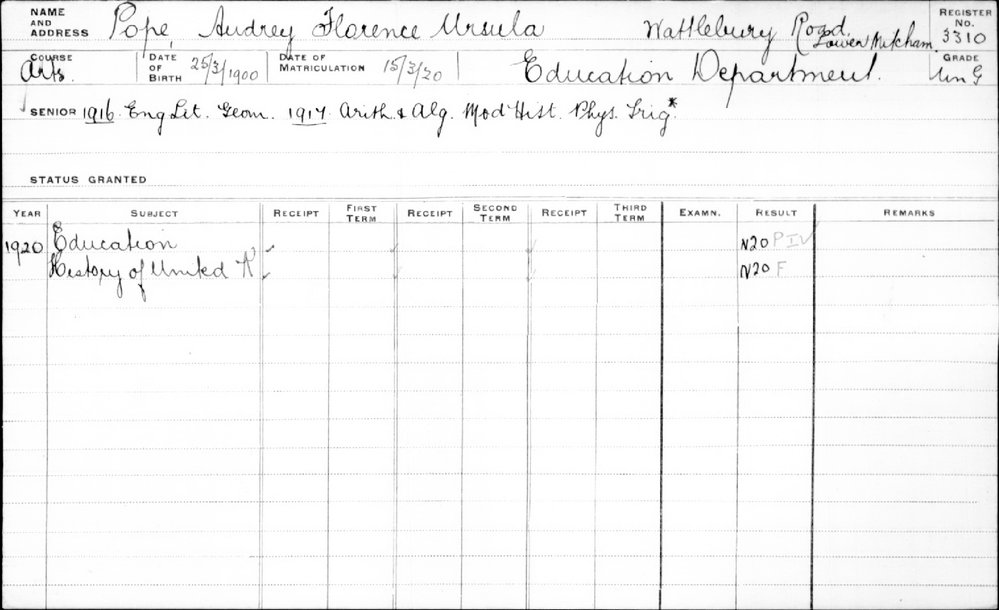 NAME AND ADDRESS Pope, Audrey Florence Ursula Wattlebury Road, Lower Mitcham. REGISTER No. 3310
COURSE Arts. DATE OF BIRTH 25/3/1900 DATE OF MATRICULATION 15/3/20 Education Department. GRADE Un G
SENIOR 1916 Eng Lit. Geom. 1917 Arith & Alg. Mod Hist. Phys. Trig*
STATUS GRANTED
YEAR SUBJECT RECEIPT FIRST TERM RECEIPT SECOND TERM RECEIPT THIRD TERM EXAMN. RESULT REMARKS
1920 Education ✓ ✓ ✓ N20 P IV
History of United K ✓ ✓ ✓ N20 F